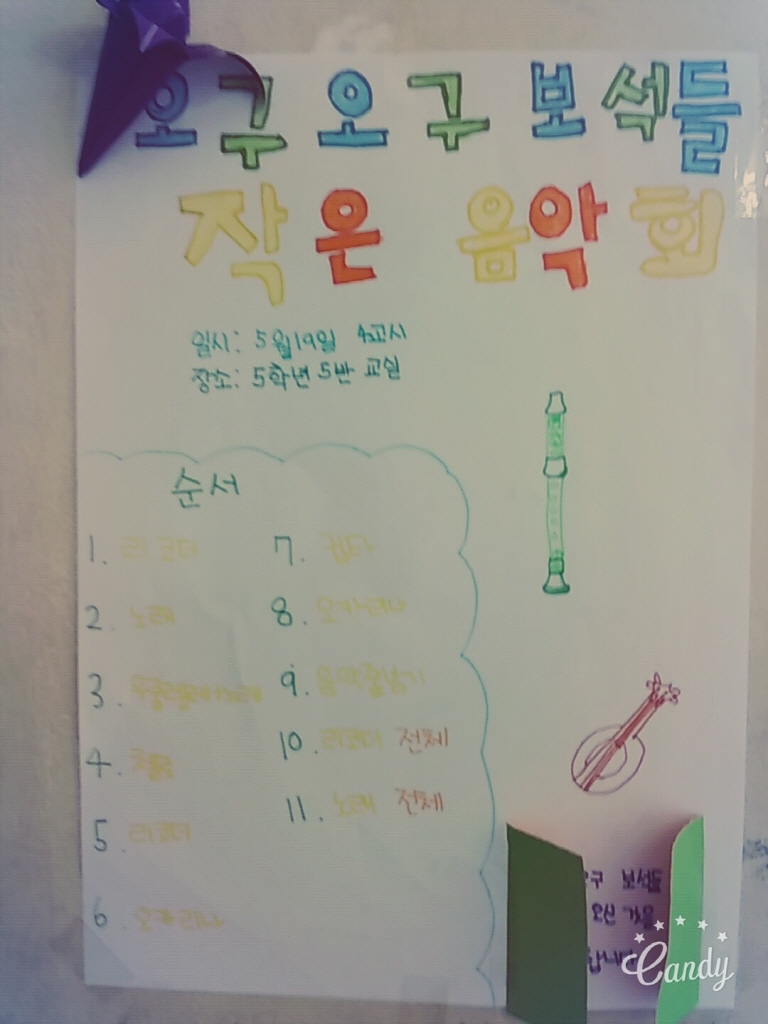 오구 오구 보석들
작은 음악회
일시: 5월19일 4교시
장소: 5학년 5반 교실
순서
1. 리코더
2. 노래
3.
4.
5. 리코더
6. 오카리나
7. 컵타
8. 오카리나
9. 음악줄넘기
10. 리코더 전체
11. 노래 전체
구 보석들
오신 것을
합니다
Candy